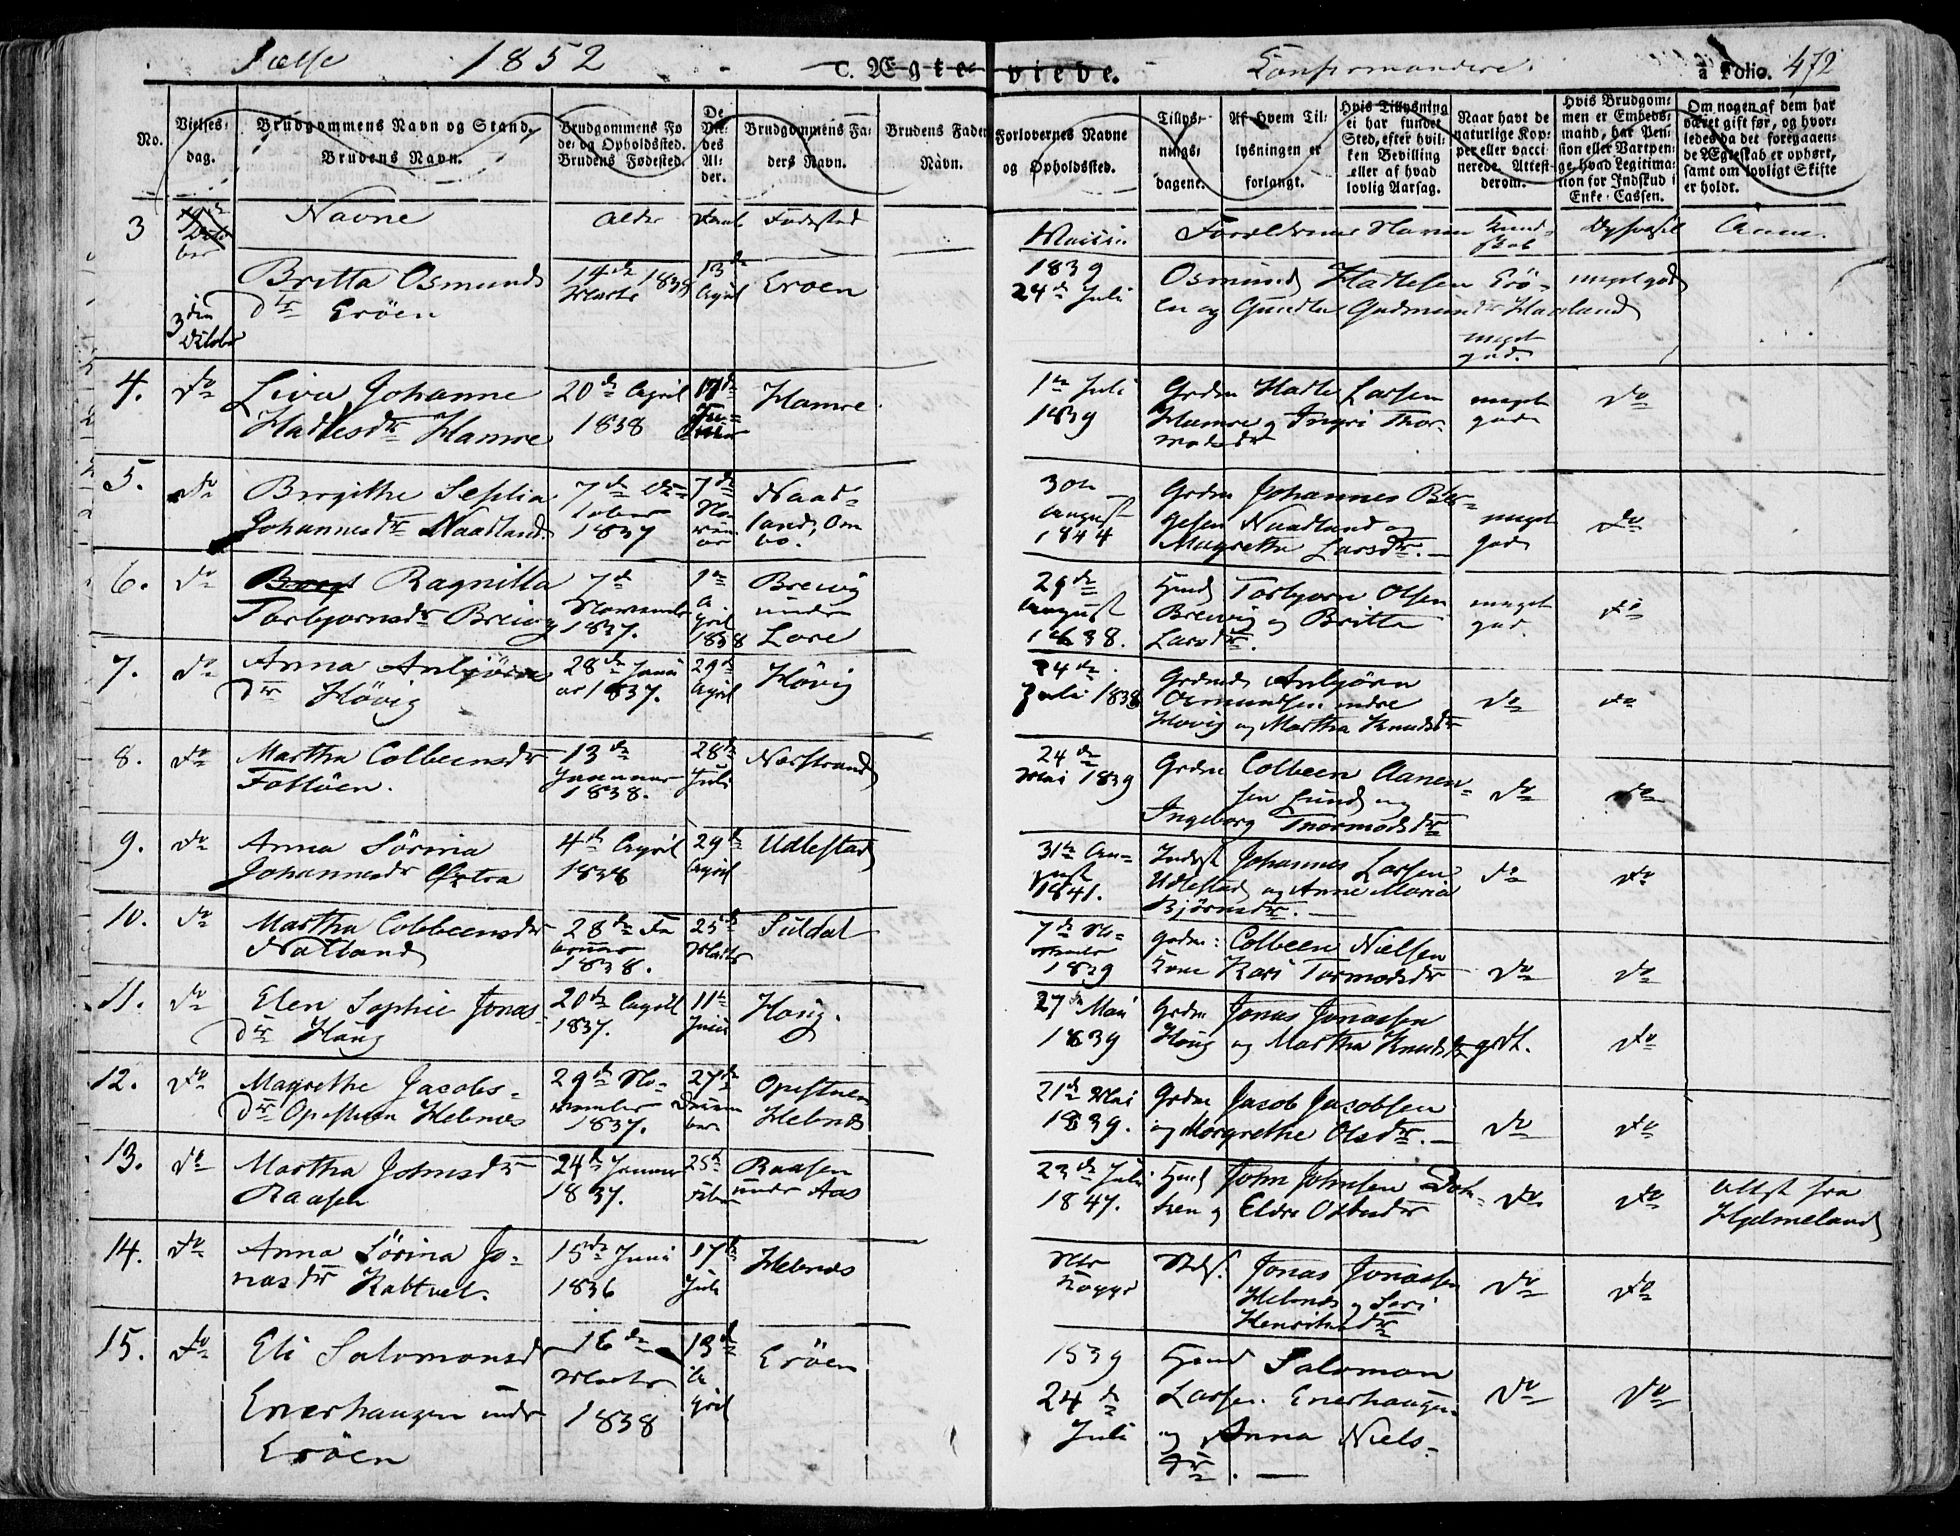 Jælse 1852 C. Ægteviede. Confirmandere. a Folio. 472
No.
Vielses-
dag.
Brudgommens Navn og Stand.
Brudens Navn.
Brudgommens Fø
de- og Opholdssted.
Brudens Fødested.
De
Vie-
des
Al-
der.
Brudgommens Fa-
ders Navn.
Brudens Faders
Navn.
Forlovernes Navne
og Opholdssted.
Tillys-
nings-
dagene.
Af hvem Til-
lysningen er
forlangt.
Hvis Tillysning
ei har fundet
Sted, efter hvil-
ken Bevilling
eller af hvad
lovlig Aarsag.
Naar havt de
naturlige Kop-
per eller vacci-
nerede. Attest-
derom.
Hvis Brudgom-
men er Embeds-
mand, har Pen-
sion eller Vartpen-
ge, hvad Legitima-
tion for Indskud i
Enke-Cassen.
Om nogen af dem har
været gift før, og hvor-
ledes da det foregaaen-
de Ægteskab er ophørt,
samt om lovligt Skifte
er holdt.
Navne Alder Daab Fødested Vaccin Forældrenes Navne Kund-
skab
Anm.
3 den
October
Britta Osmunds
dr Erøen
14de Marts 1838
13de April
Erøen
1839
24de Juli
Osmund Hadlesen Erø-
en og Gundla Gudmunds dr Haaland
meget
god
meget god
4. do Liva Johanne
Hadlesdr Hamre
20de April
1838
Hamre
1te Juli
1839
Grdm Hadle Larsen
Hamre og Ingri Thor-
modsdr
meget
god
do
5. do Birgithe Seslia
Johannesdr Naadland
7de Oc-
tober
1837
7de
No-
vem-
Naad-
land, Om
bo.
30te
August
1844
Grdm Johannes Bir-
gesen Naadland og
Magretha Larsdr. —
meget
god
do
6. do Ragnilla
Torbjørnsdr Brevig
7de
Novembr
1837.
1te
A
pril
1838
Brevig
under
Lore
29de
August
1838.
Huusmd Torbjørn Olsen
Brevig og Britta
Larsdr.
meget
god
do
7. do Anna Anbjørns
dr Høvig
28de Janu
ar 1837.
29de
April
Høvig
24de
Juli 1838
Grdmd Anbjørn
Osmundsen
Høvig og Martha Knudsdr
do do
8. do Martha Colbeensdr
Fatløen.
13de
Januar
1838.
28de
Juli
Nærstrand
24de
Mai 1839
Grdm Colbeen Aanen-
sen Lund og
Ingeborg Thormodsdr
do do
9. do Anna Sørina
Johannesdr Østra
4de April
1838
29de
April
Udlestad
31te Au-
gust
1841.
Indst Johannes Larsen
Udlestad og Anne Maria
Bjørnsdr. —
do do
10. do Martha Colbeensdr
Natland
28de Fe
bruar
1838.
25de
Marts
Suldal
7de No-
vembr
1839
Grdm: Colbeen Nielsen
Kone Kari Tormodsdr
do do
11. do Elen Sophie Jonas-
dr Høug
20de April
1837.
11te
Juni
Høug.
27de Mai
1839
Grdm Jonas Jonassen
Høug og Martha Knudsdr
godt. do
12. do Magrethe Jacobs-
dr Opestuen Hebnes
29de No-
vember
1837.
27de
Decem
ber
Opestuen
Hebnes
21de Mai
1839.
Grdm Jacob Jacobsen
og Margrethe Olsdr. —
do do
13. do Martha Johnsdr
Raasen
24de Januar
1837.
25de
Febr
Raasen
under Aas
23de Juli
1847.
Huusmd John Johnsen
og Eldre
do do
Attest fra
Hjelmeland
14. do Anna Sørina Jo-
nasdr Kattvet.
15de Juni
1836
17de
Juli
Hebnes
Ntr
Kopper
Jonas Jonassen
Hebnes og Siri
Henriksdr
do do
15. do Eli Salomonsd
Enerhaugen under
Erøen
16de
Marts
1838
13de
A
pril
Erøen
1839
24de
Juli
Huusmd Salomon
Larsen Enerhaugen
og Anna Niels-
dr. —
do do